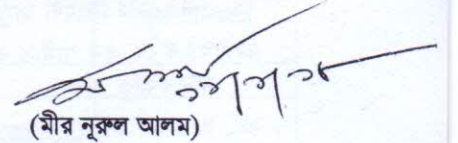 (মীর নূরুল আলম)